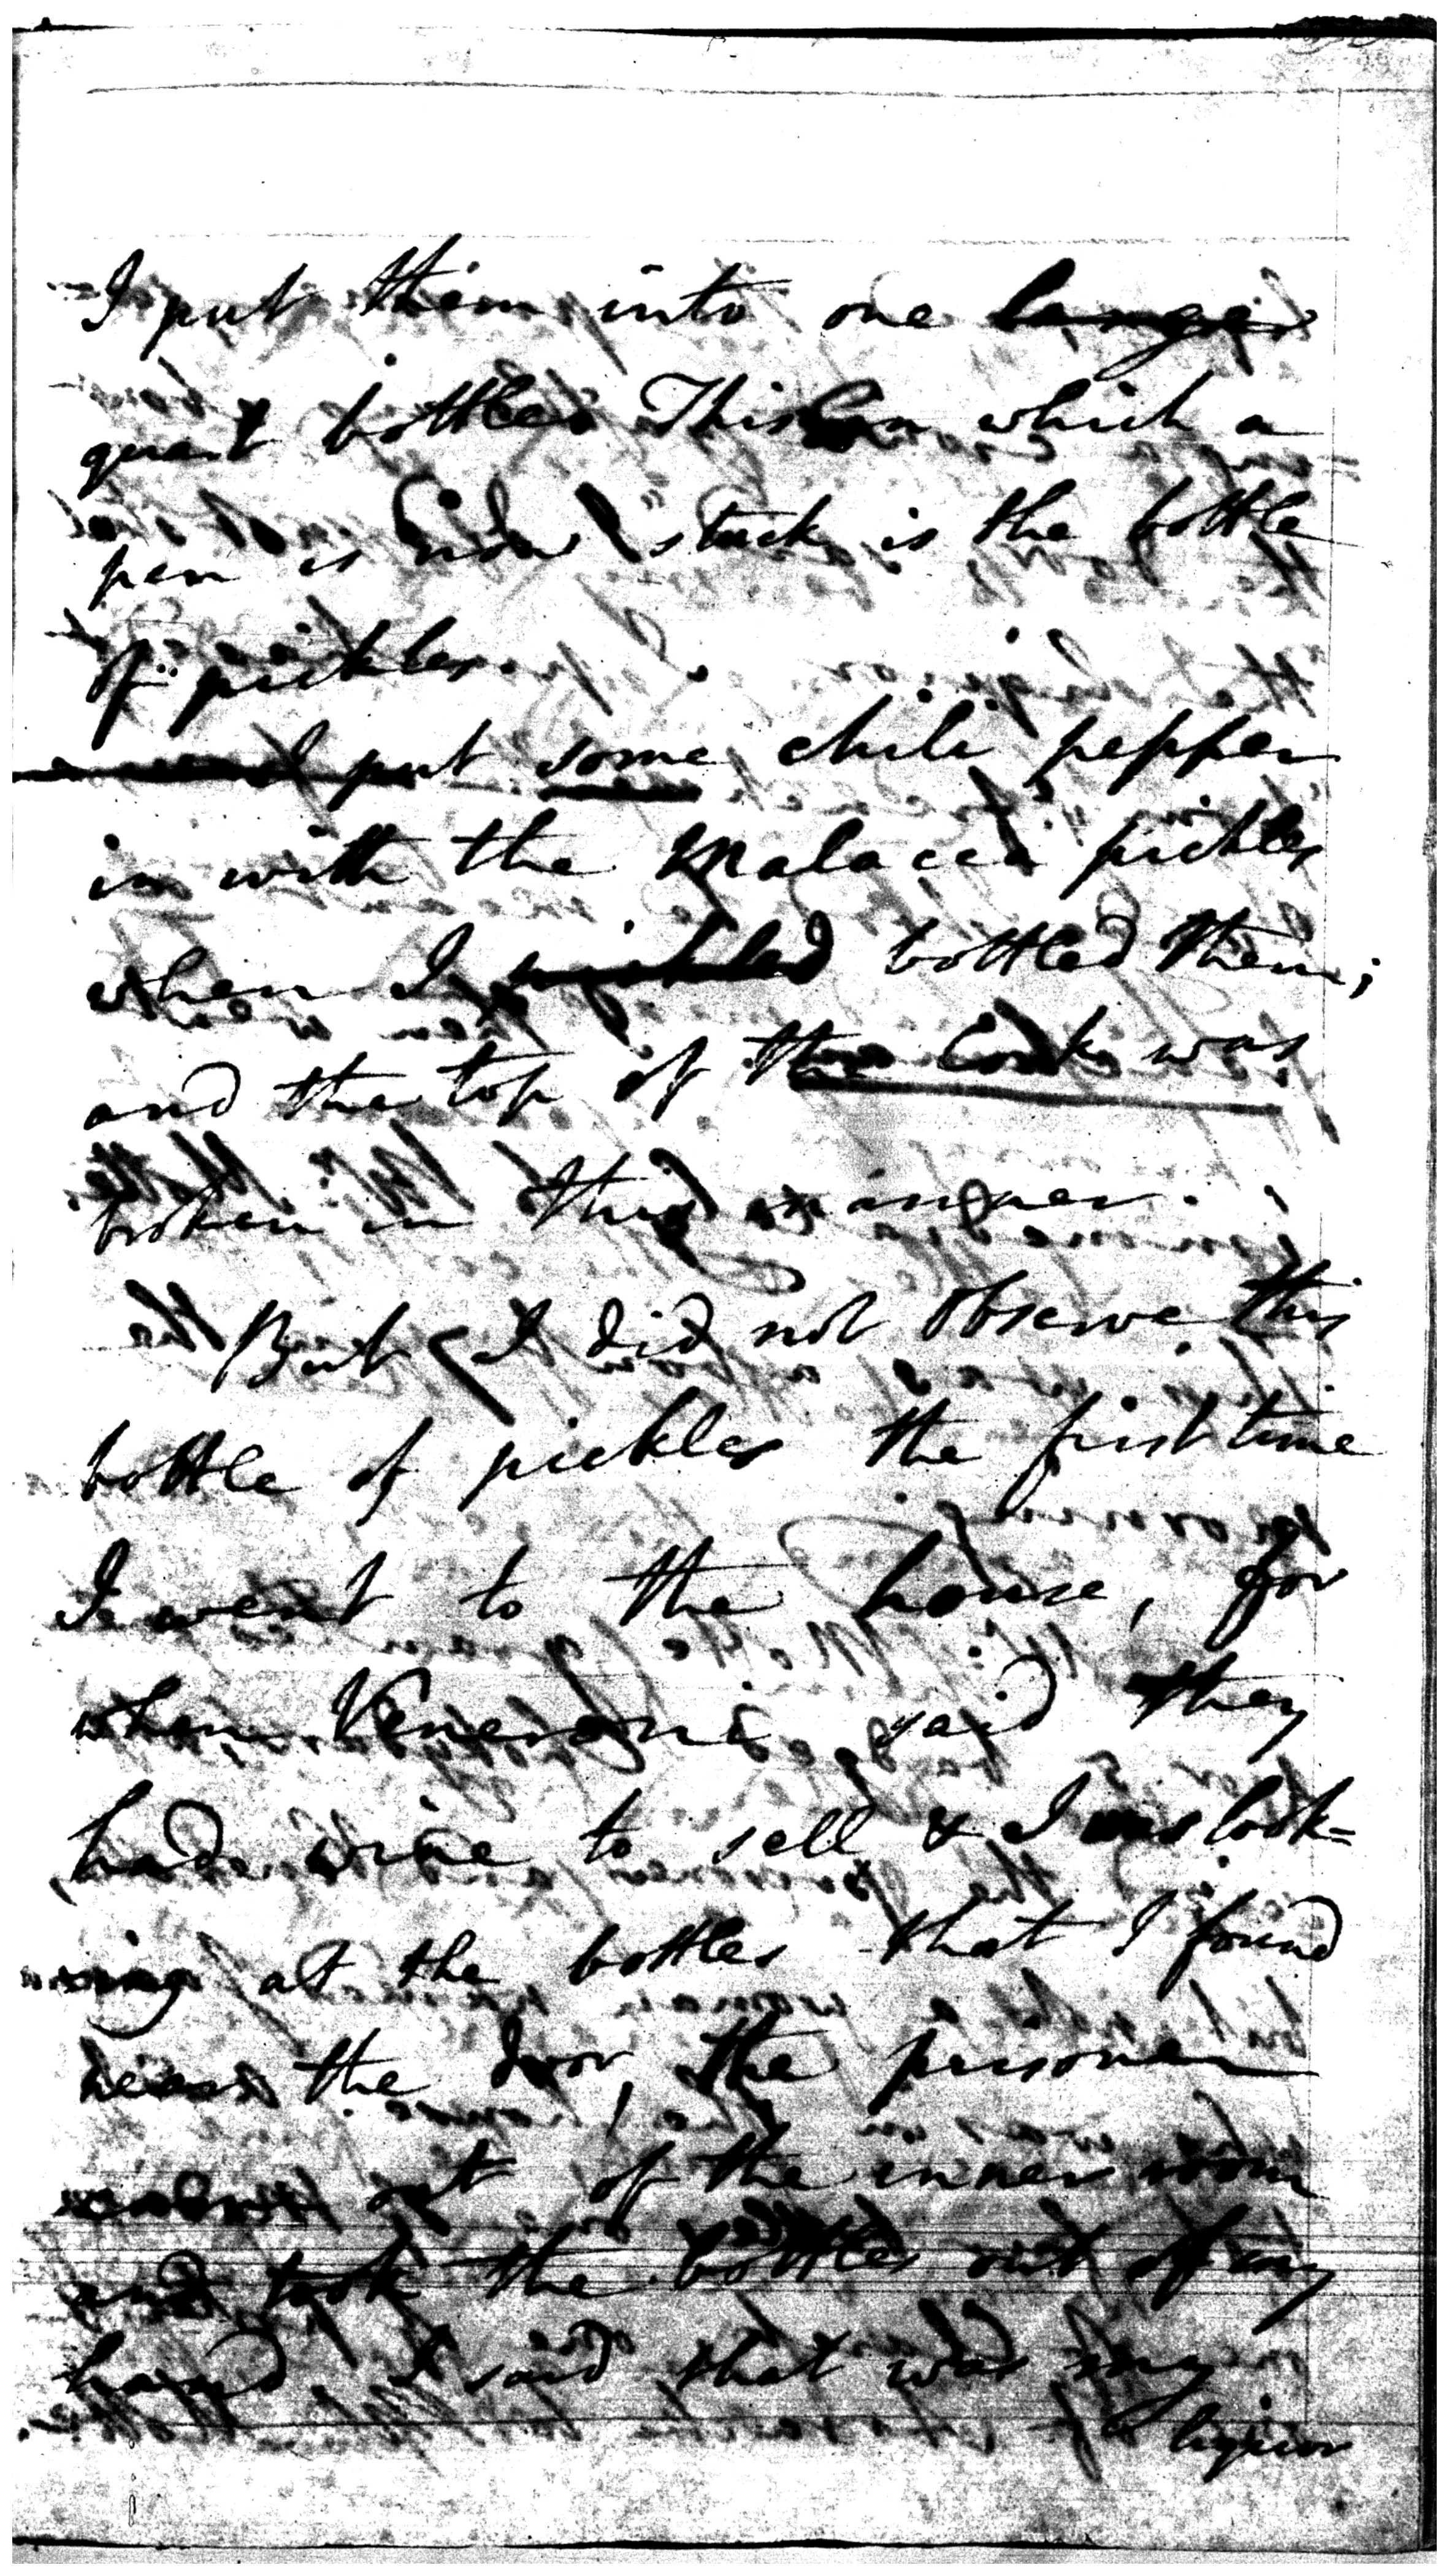 I put them into one larger
quart bottle. This in which a
pen is now stuck is the bottle
of pickles.
I put some chili pepper
in with the Malacca pickles
when I pickled bottled them;
and the top of the Cork was
broken in this manner.
But I did not observe this
bottle of pickles the first time
I went to the house, for
when Venerani said they
had wine to sell & I was look=
ing at the bottles that I found
near the door, the prisoner
came out of the inner room
and took the bottles out of my
hand. I said that was my
liquor